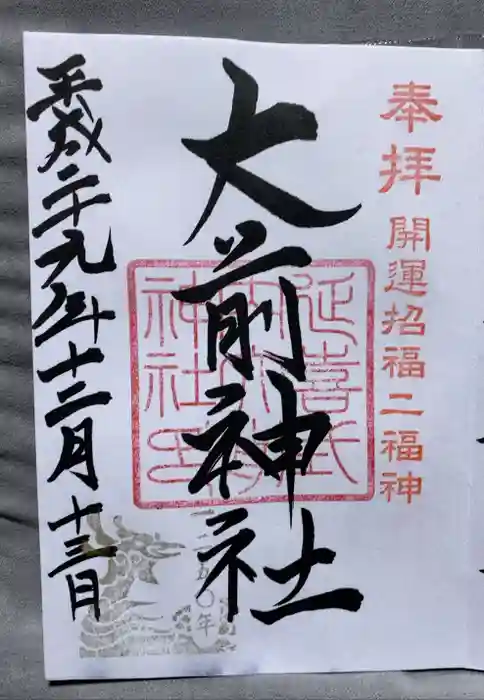 奉拝 開運招福二福神
大前神社
延喜式
内大前
神社印
平成二十九年十二月十三日
五〇年